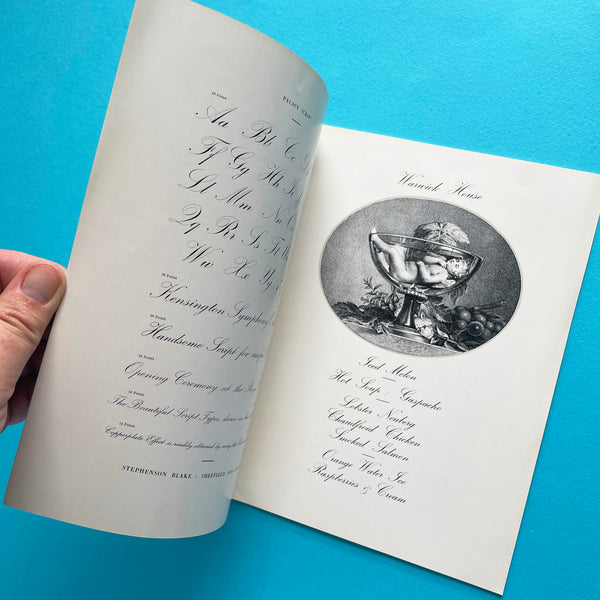 48 Point
PALACE SCRIPT
Aa Bb Cc
Ff Gg Hh
Ll Mm Nn
Qq Rr Ss Tt
Ww Xx Yy
Kensington Symphony
Handsome Script for
24 Point
Opening Ceremony at the
The Beautiful Script Types shown
Copperplate Effect is readily obtained by using the
STEPHENSON BLAKE : SHEFFIELD AND
Warwick House
Iced Melon
Hot Soup - Gaspacho
Lobster Newberg
Chaudfroid Chicken
Smoked Salmon
Orange Water Ice
Raspberries & Cream